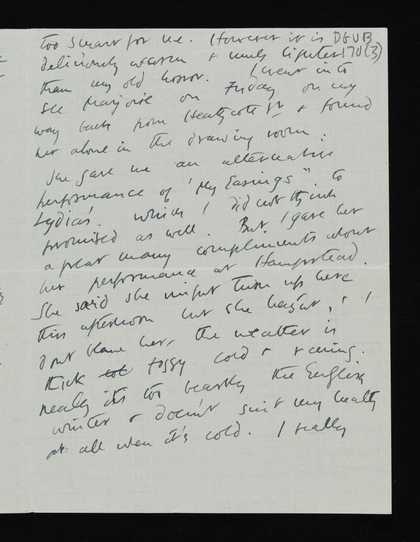 too smart for me. However it is DGVB
deliciously warm & much lighter 170(3)
than my old horror. I went in to
see Marjorie on Friday on my
way back from Heathcote St & found
her alone in the drawing room.
She gave me an alternative
performance of "My Earrings" to
Lydia's. Which I did not think
promised as well. But I gave her
a great many compliments about
her performance at Hampstead.
She said she might turn up here
this afternoon but she hasn't, & I
dont blame her, the weather is
thick foggy cold & raining.
Really its too beastly the English
winter & doesn't suit my health
at all when it's cold. I really